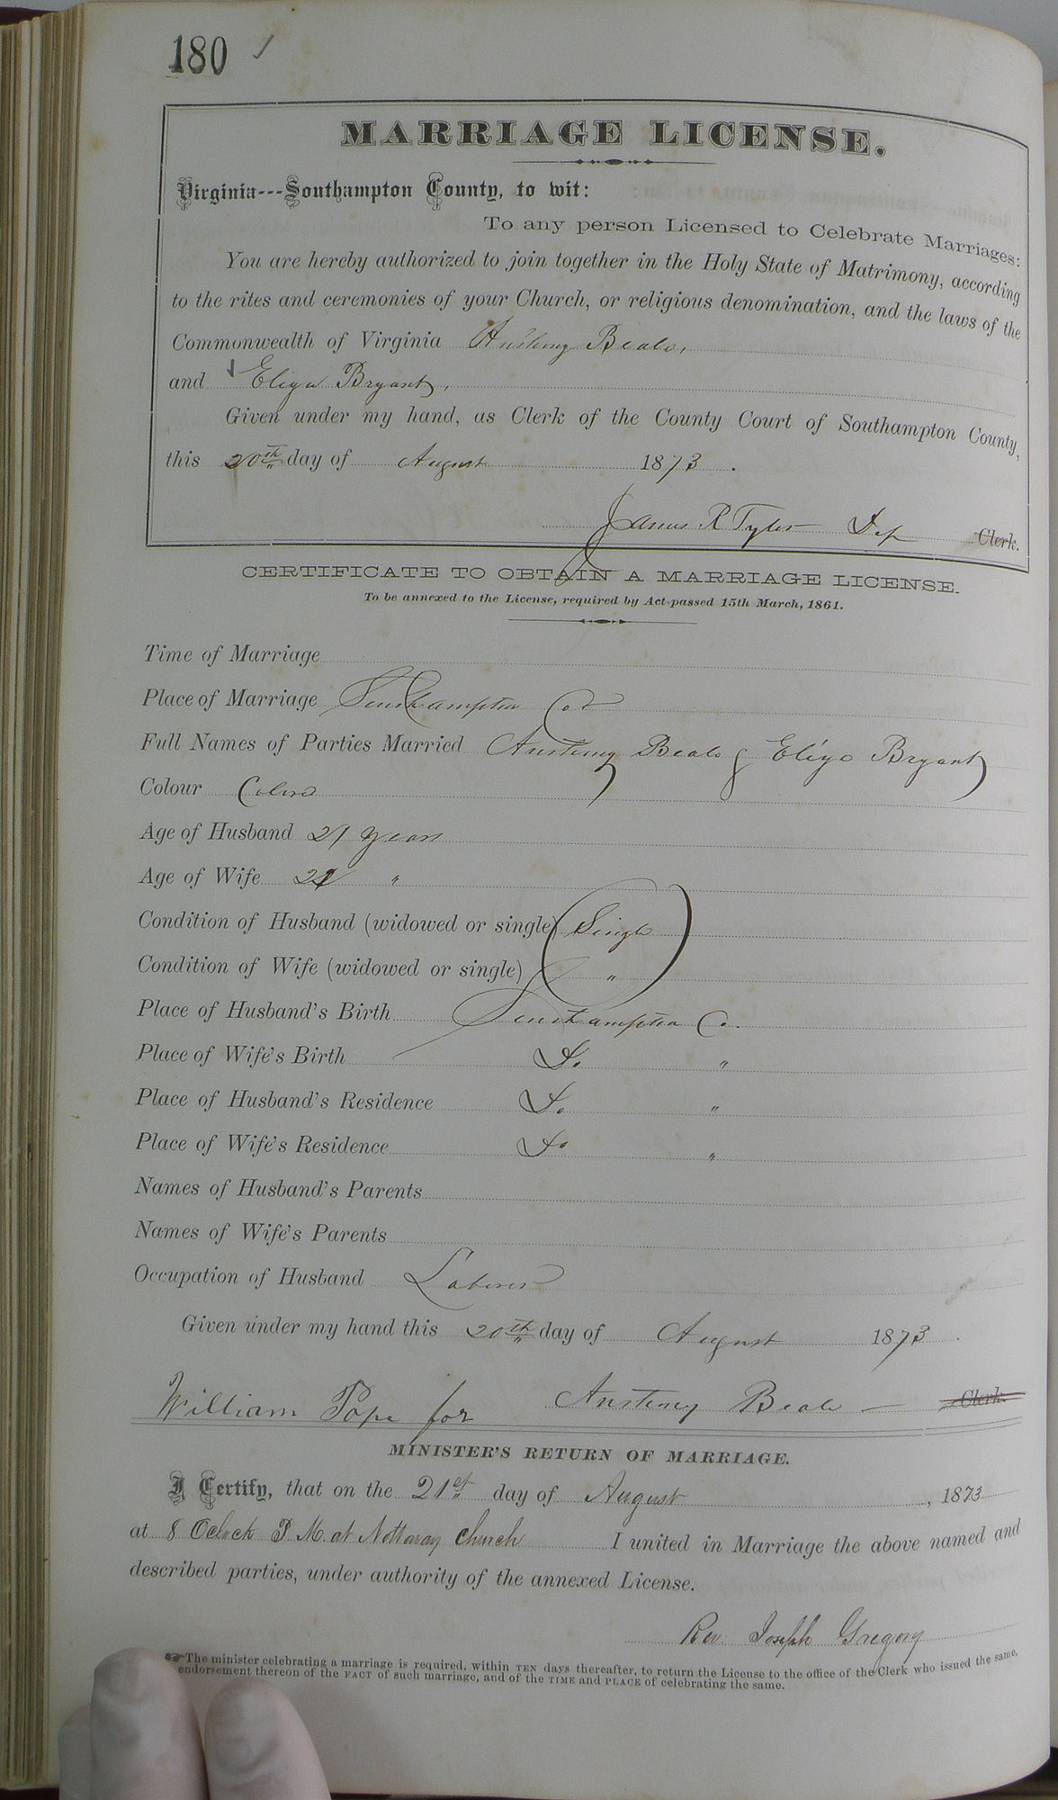 180 ✓
MARRIAGE LICENSE.
Virginia---Southampton County, to wit:
To any person Licensed to Celebrate Marriages:
You are hereby authorized to join together in the Holy State of Matrimony, according
to the rites and ceremonies of your Church, or religious denomination, and the laws of the
Commonwealth of Virginia Austiny Beals,
and Eliza Bryant,
Given under my hand, as Clerk of the County Court of Southampton County,
this 20th day of August 1873.
James R Tyler Dep Clerk.
CERTIFICATE TO OBTAIN A MARRIAGE LICENSE.
To be annexed to the License, required by Act passed 15th March, 1861.
Time of Marriage
Place of Marriage Southampton Co
Full Names of Parties Married Austiny Beals & Eliza Bryant
Colour Colored
Age of Husband 21 years
Age of Wife "
Condition of Husband (widowed or single) Single
Condition of Wife (widowed or single) "
Place of Husband's Birth Southampton Co.
Place of Wife's Birth Do "
Place of Husband's Residence Do "
Place of Wife's Residence Do "
Names of Husband's Parents
Names of Wife's Parents
Occupation of Husband Laborer
Given under my hand this 20th day of August 1873.
William Pope for Austiny Beals — Clerk.
MINISTER'S RETURN OF MARRIAGE.
I Certify, that on the 21st day of August, 1873
at 8 Oclock P. M. at Nottoway church I united in Marriage the above named and
described parties, under authority of the annexed License.
Rev Joseph Gregory
☞ The minister celebrating a marriage is required, within TEN days thereafter, to return the License to the office of the Clerk who issued the same,
endorsement thereon of the FACT of such marriage, and of the TIME and PLACE of celebrating the same.